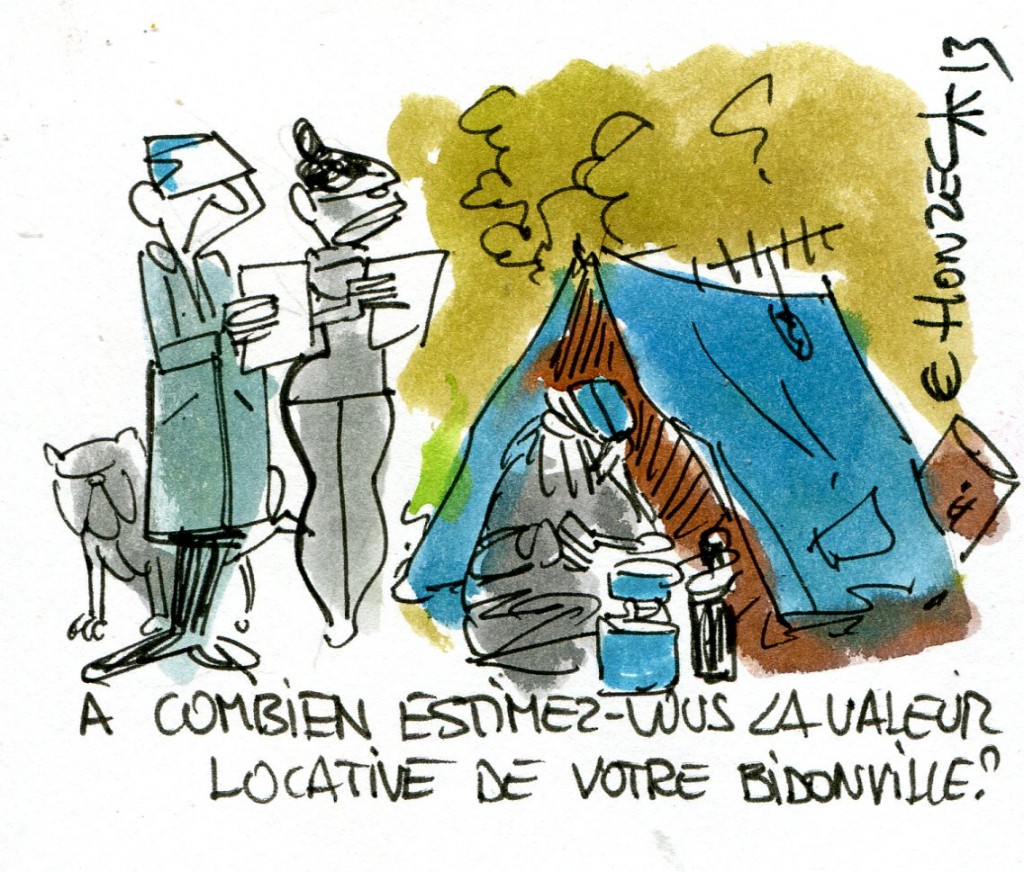 € HONZECK 13
A COMBIEN ESTIMEZ-VOUS LA VALEUR
LOCATIVE DE VOTRE BIDONVILLE?